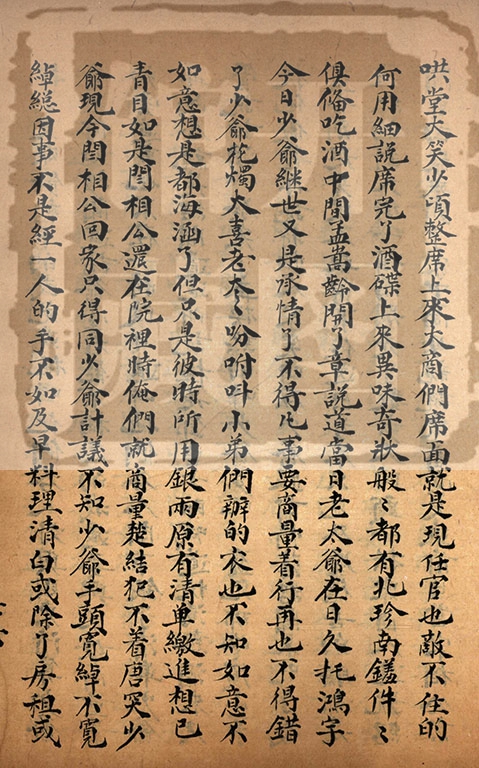 哄堂大笑少頃整席上來大商們席面就是現任官也敵不住的
何用細說席完了酒碟上來異味奇狀般〻都有北珍南鐥件〻
俱俻吃酒中間孟嵩齡開了章說道當日老太爺在日久托鴻宇
今日少爺継世又是承情了不得凡事要商量着行再也不得錯
了少爺花燭大喜老太〻吩咐呌小弟們辦的衣也不知如意不
如意想是都海涵了但只是彼時所用銀兩原有清单繳進想已
青目如是閆相公還在院裡時俺們就商量楚結犯不着唐突少
爺現今閆相公回家只得同少爺計議不知少爺手頭寛綽不寛
綽緫因事不是經一人的手不如及早料理清白或除了房租或